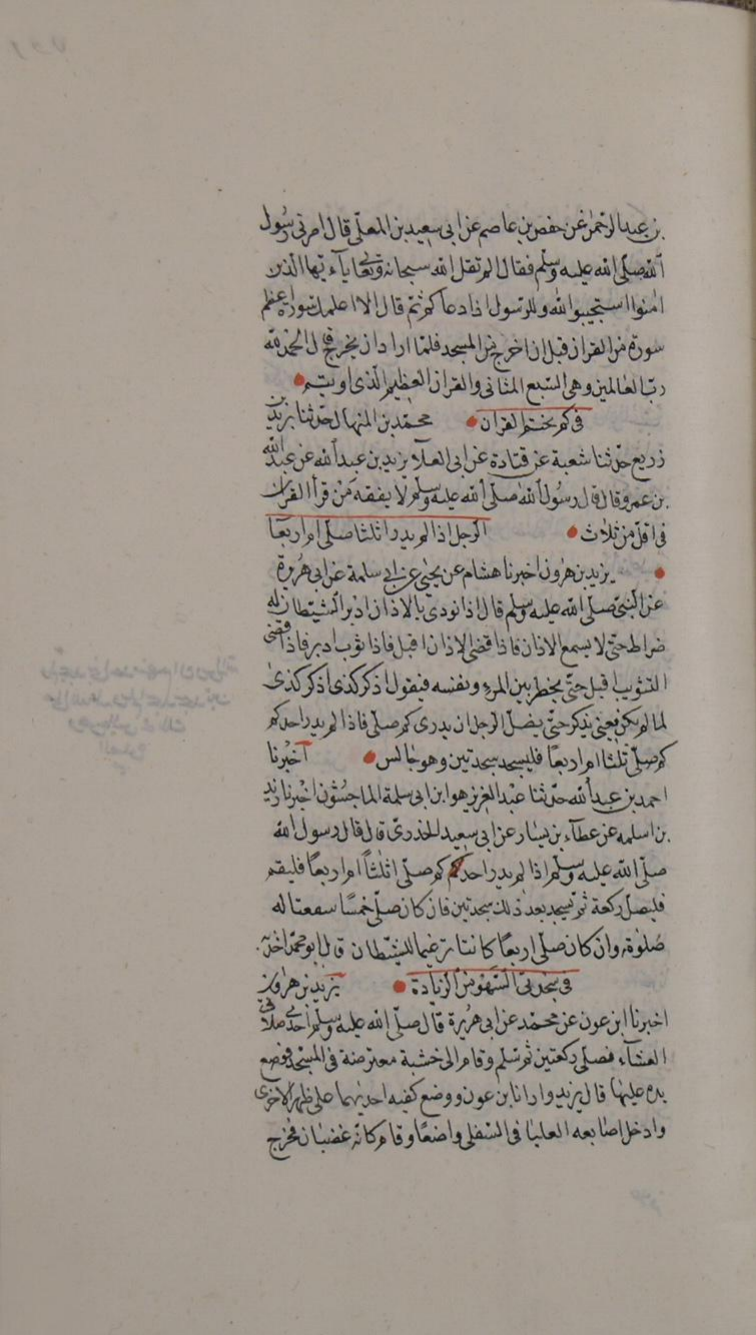 بن عبد الرحمن عن حفص بن عاصم عن ابى سعيد بن المعلى قال امر بى رسول
الله صلى الله عليه وسلم فقال الم تقل الله سبحانه وتعا يآءيها الذين
امنوا استجيبوا لله وللرسول اذا دعاكم ثم قال الا اعلمك سورة اعظم
سورة من القران قبل ان اخرج من المسجد فلما اراد ان يخرج قال الحمد لله
رب العالمين وهى السبع المثانى والقران العظيم الذى اوتيتم
فى كم يختم القران محمد بن المنهال حدثنا يزيد بن
زريع حدثنا شعبة عن قتادة عن ابى العلا يزيد بن عبد الله عن عبد الله
بن عمرو قال قال رسول الله صلى الله عليه وسلم لا يفقه من قرأ القران
فى اقل من ثلاث الرجل اذا لم يدر اثلثا صلى ام اربعا
يزيد بن هرون اخبرنا هشام عن يحيى عن ابى سلمة عن ابى هريرة
عن النبى صلى الله عليه وسلم قال اذا نودى بالاذان ادبر الشيطان له
ضراط حتى لا يسمع الاذان فاذا قضى الاذان اقبل فاذا ثوب ادبر فاذا قضى
التثويب اقبل حتى يخطر بين المرء ونفسه فيقول اذكر كذى اذكر كذى
لما لم يكن يعنى يذكر حتى يضل الرجل ان يدرى كم صلى فاذا لم يدر احدكم
كم صلى ثلثا ام اربعا فليسجد سجدتين وهو جالس اخبرنا
احمد بن عبد الله حدثنا عبد العزيز هو ابن ابى سلمة الماجشون اخبرنا زيد
بن اسلمه عن عطآء بن يسار عن ابى سعيد الخدرى قال قال رسول الله
صلى الله عليه وسلم اذا لم يدر احدكم كم صلى اثلثا ام اربعا فليقم
فليصل ركعة ثم يسجد بعد ذلك سجدتين فان كان صلى خمسا شفعتا له
صلوة وان كان صلى اربعا كانتا ترغيما للشيطان قال ابو محمد اخذ به
فى سجدتى السهو من الزيادة يزيد بن هرون
اخبرنا ابن عون عن محمد عن ابى هريرة قال صلى الله عليه وسلم احدى صلاتى
العشآء فصلى ركعتين ثم سلم وقام الى خشبة معترضة فى المسجد فوضع
يده عليها قال يزيد وارانا ابن عون ووضع كفيه احديهما على ظهر الاخرى
وادخل اصابعه العليا فى السفلى واضعا وقام كانه غضبان فخرج